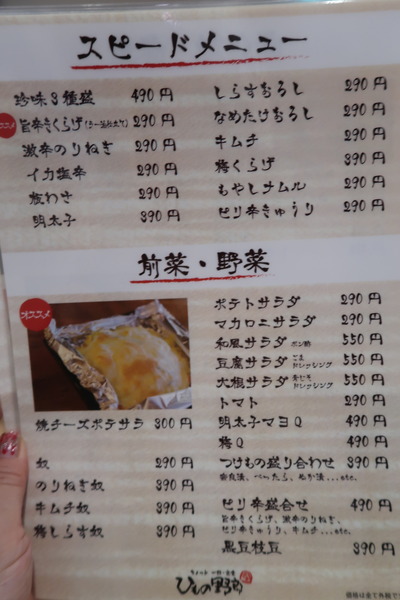 スピードメニュー
珍味3種盛 490円
オススメ 旨辛きくらげ(ラー油仕立て) 290円
激辛のりねぎ 290円
イカ塩辛 290円
板わさ 290円
明太子 390円
しらすおろし 290円
なめたけおろし 290円
キムチ 290円
梅くらげ 390円
もやしナムル 290円
ピリ辛きゅうり 290円
前菜・野菜
オススメ
焼チーズポテサラ 300円
奴 290円
のりねぎ奴 390円
キムチ奴 390円
梅しらす奴 390円
ポテトサラダ 290円
マカロニサラダ 290円
和風サラダ ポン酢 550円
豆腐サラダ ごまドレッシング 550円
大根サラダ 青じそドレッシング 550円
トマト 290円
明太子マヨQ 490円
梅Q 490円
つけもの盛り合わせ 390円
奈良漬、べったら、ぬか漬...etc.
ピリ辛盛合せ 490円
旨辛きくらげ、激辛のりねぎ、
ピリ辛きゅうり、キムチ...etc.
黒豆枝豆 390円
ひもの野郎
価格は全て外税で